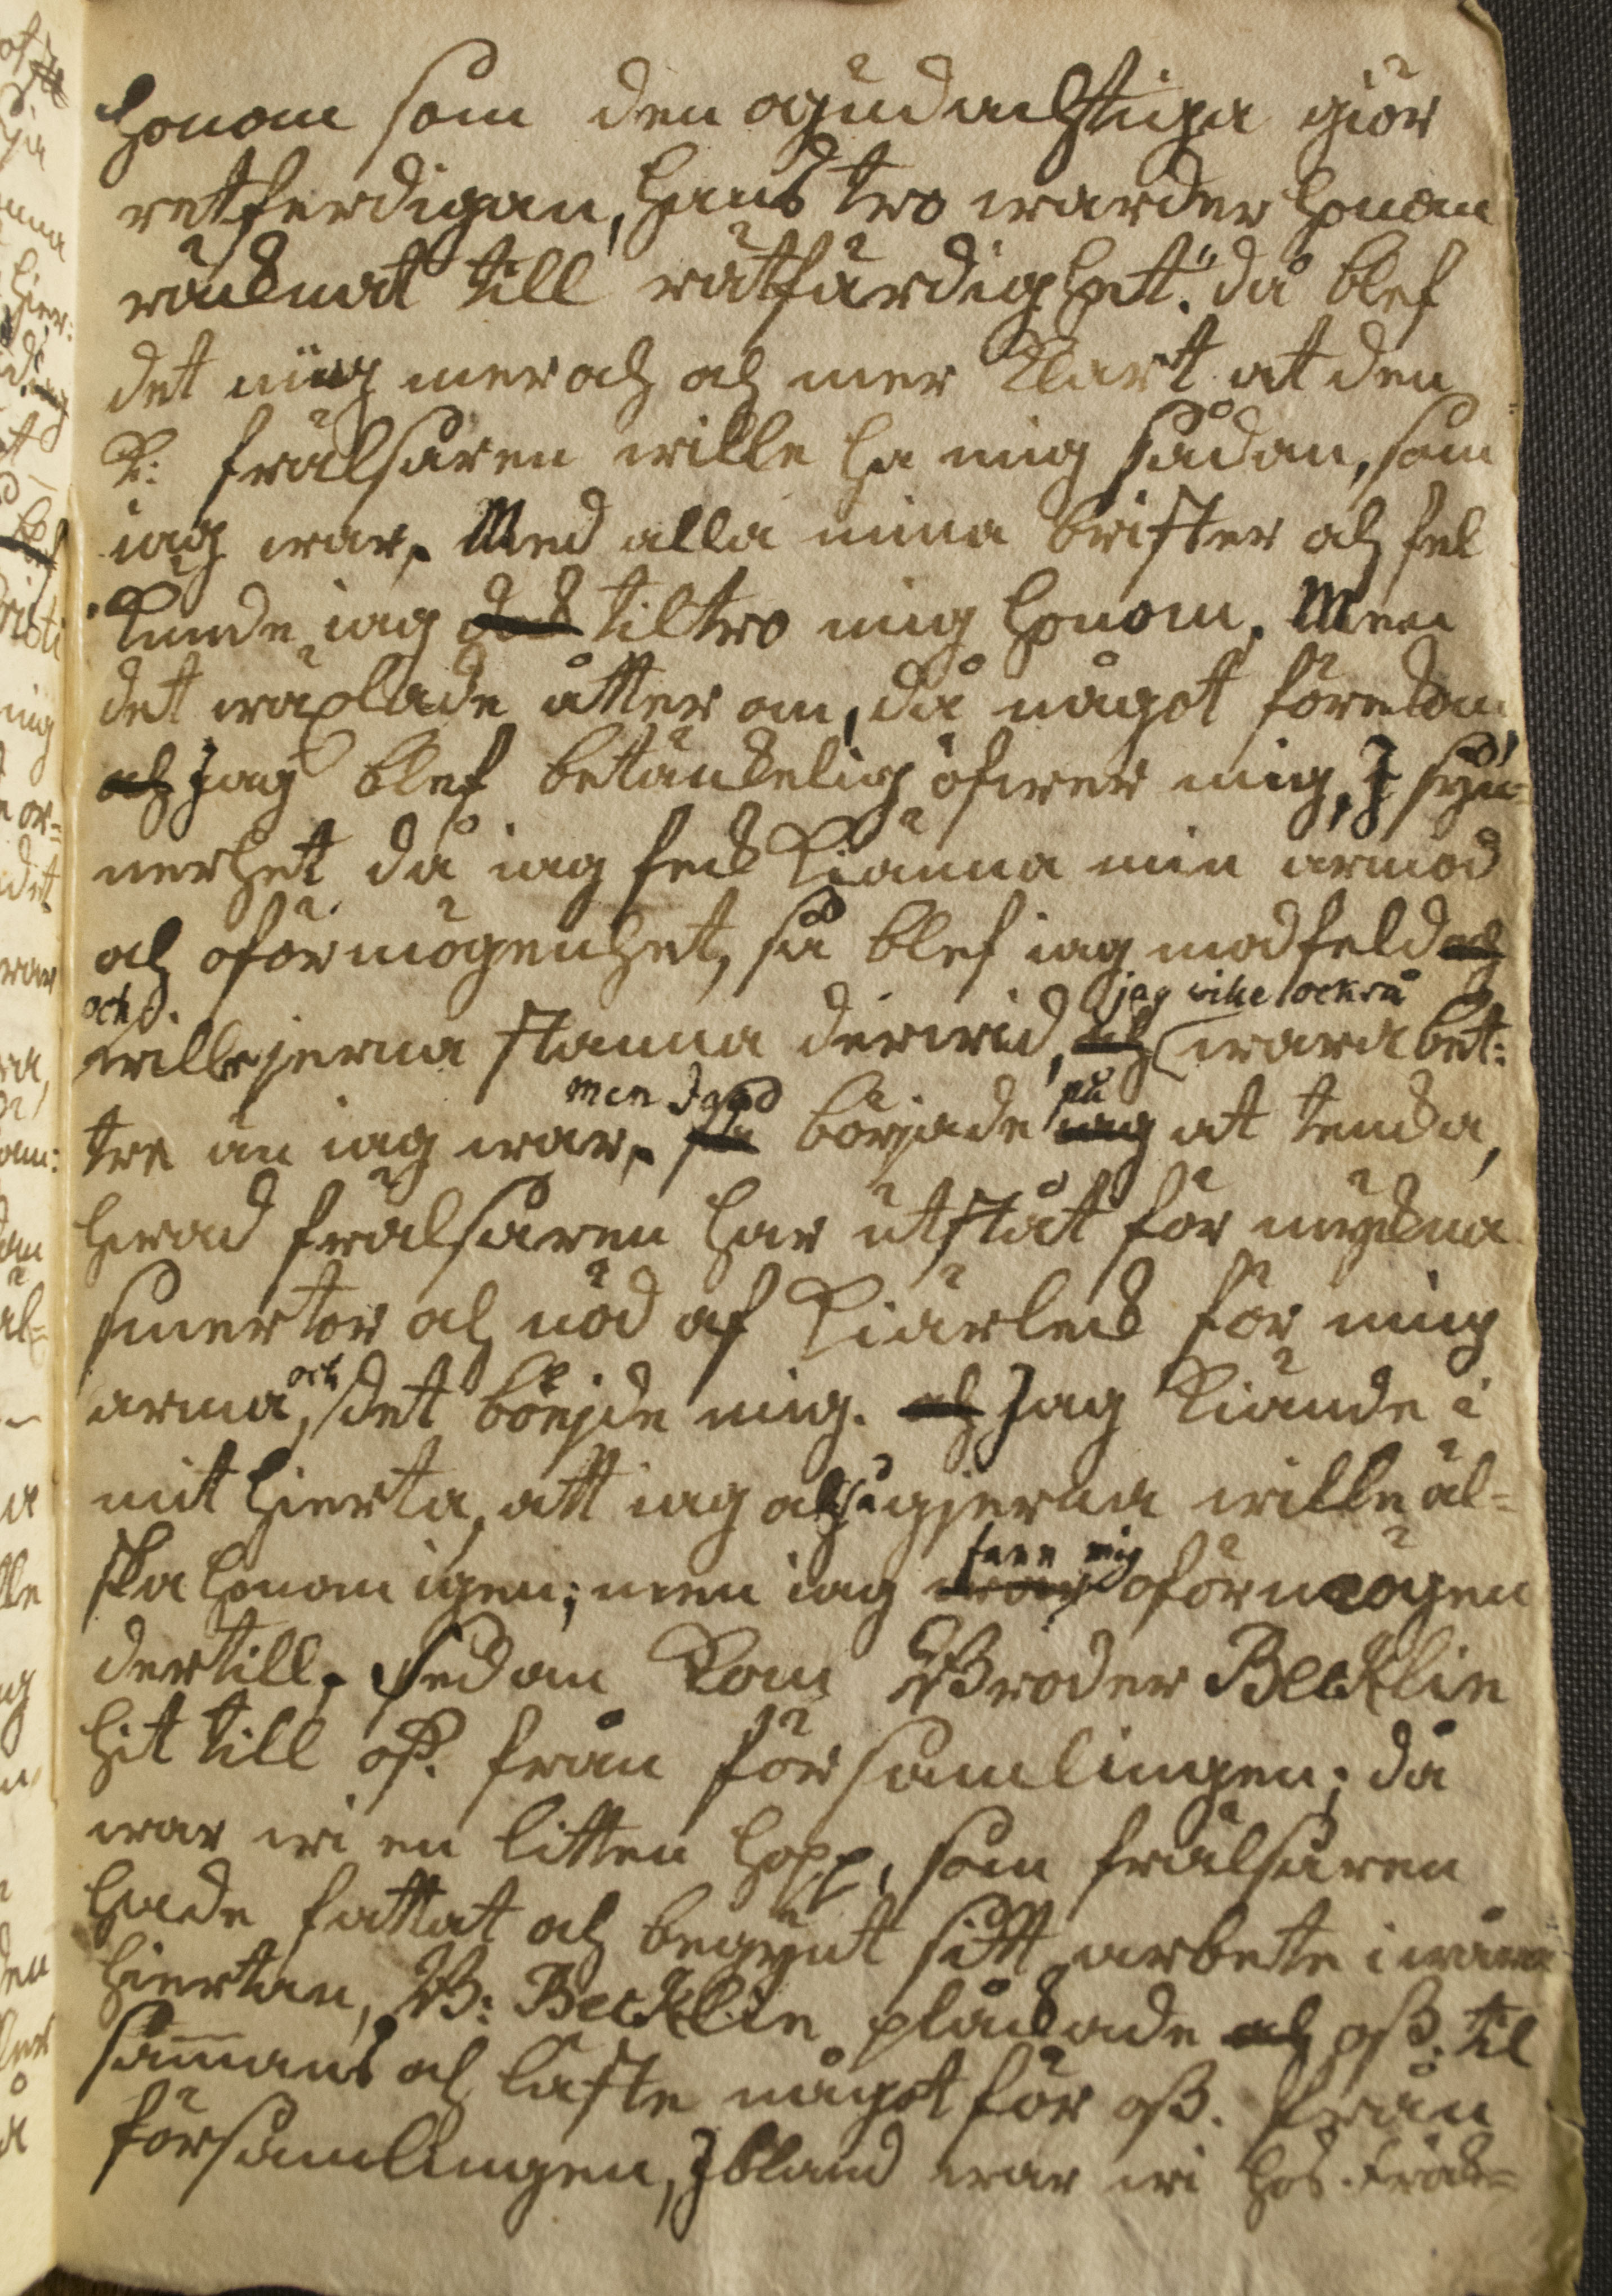 honom som den ogudachtiga giör
retferdigan, hans tro warder honom
räcknat till rätfärdighet." då blef
det mig mer och och mer klart at den
K: frälsaren wille ha mig sådan, som
iag war, Med alla mina brister och fel
kunde iag tiltro mig honom. Men
det wäxlade åtter om, då något förekom
och Jag blef betänckelig öfwer mig, J syn-
nerhet då iag feck kiänna min armod
och oförmögenhet, så blef iag modfeld och
och
wille gerna stanna derwid, och jag wille ocksså wara bet:
tre än iag war, men Jag började på at tencka,
hwad frälsaren har utståt för myckna
smertor och nöd af kiärleck för mig
arma, och det böijde mig. och Jag kiände i
mit hierta, att iag också gierna wille äl-
ska honom igen; men iag fann mig oförmögen
dertill, sedan kom Broder Becklin
hit till oss. från församlingen; då
war wi en litten hopp, som frälsaren
hade fattat och begynt sitt arbette i wåra
hiertan, B: Becklin plåckade och oss. til
sammans och läste något för oss. från
församlingen, Jbland war wi hos